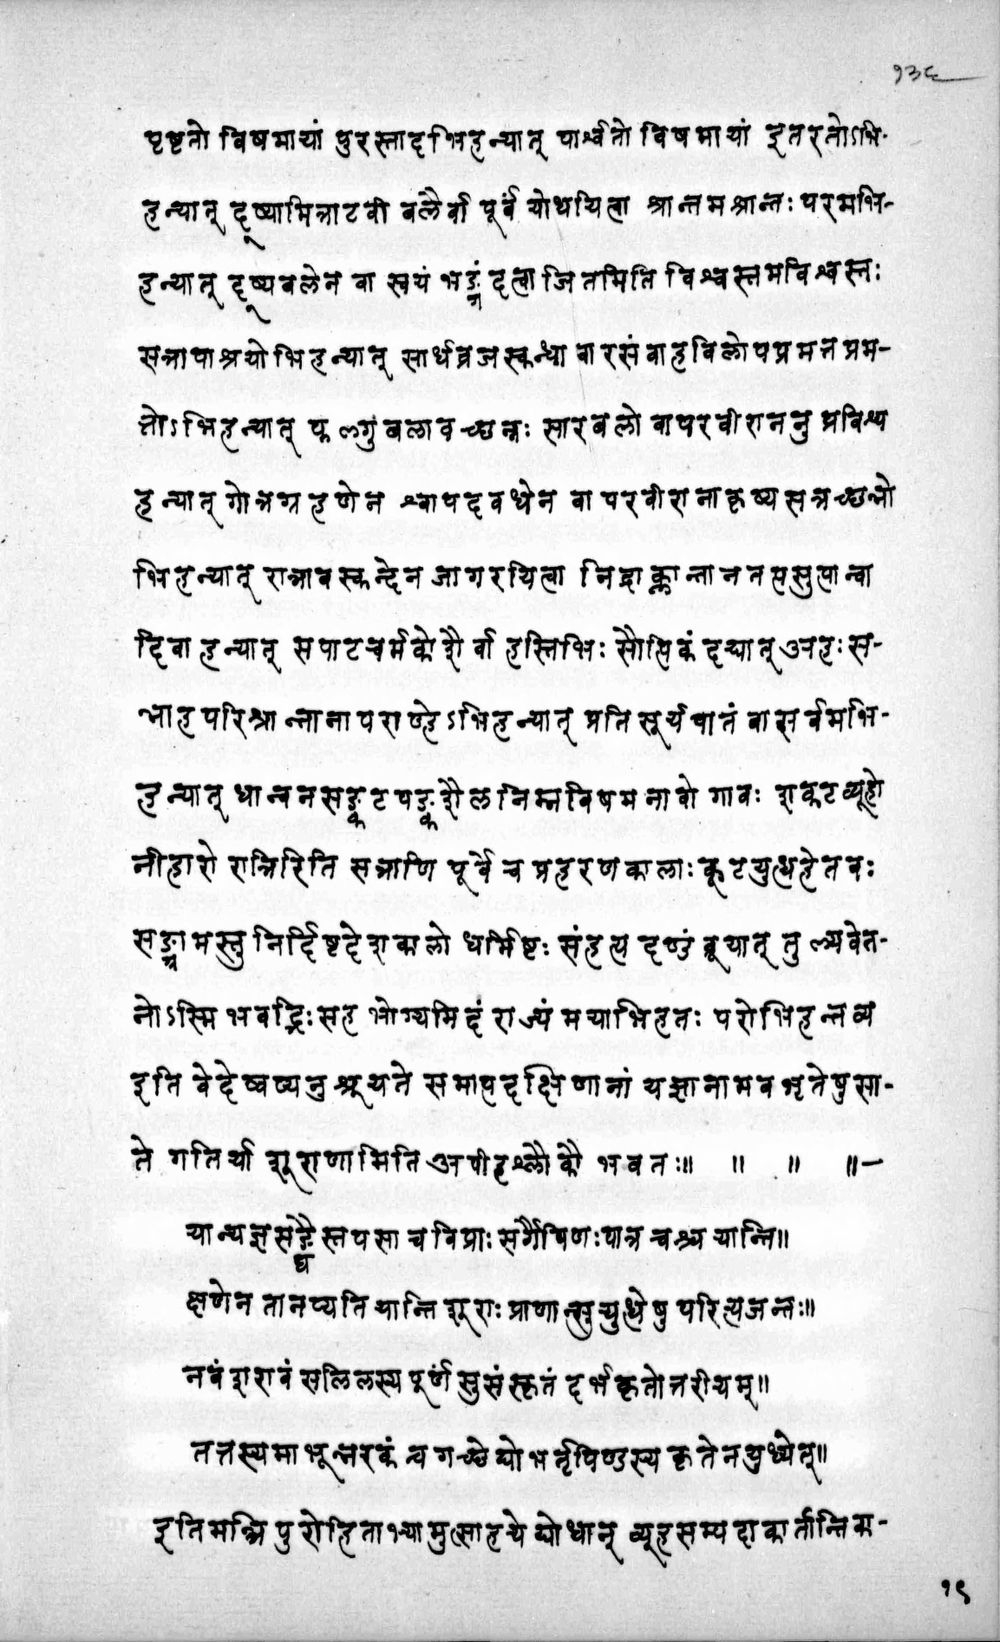 १३६
पृष्टतो विषमायां पुरस्तादभिहन्यात् पार्श्वतो विषमायां इतरतोऽभि-
हन्यात् दूष्यामित्राटवी बलैर्वा पूर्वं योधयित्वा श्रान्तमश्रान्तः परमभि-
हन्यात् दूष्यबलेन वा स्वयं भङ्गं दत्वा जितमिति विश्वस्तमविश्वस्तः
सत्रापाश्रयोभिहन्यात् सार्थव्रजस्कन्धा वारसंवाहविलोपप्रमत्तप्रम-
त्तोऽभिहन्यात् फल्गुबलावच्छन्नः सारबलो वा परवीराननुप्रविश्य
हन्यात् गोग्रहणेन श्वापदवधेन वा परवीरानाकृष्य सत्रच्छन्नो
भिहन्यात् रात्रावस्कन्देन जागरयित्वा निद्राक्लान्तानतप्तसुप्तान्वा
दिवा हन्यात् सपाटचर्मकोशैर्वा हस्तिभिः सौप्तिकं दद्यात् अहःस-
न्नाह परिश्रान्तानापराण्हेऽभिहन्यात् प्रतिसूर्यवातं वा सर्वमभि-
हन्यात् धान्वनसङ्कटपङ्कशैलनिम्नविषमनावो गावः शकटव्यूहो
नीहारो रात्रिरिति सत्राणि पूर्वे च प्रहरणकालाः कूटयुध्धहेतवः
सङ्ग्रामस्तु निर्दिष्टदेशकालो धर्मिष्टः संहत्य दण्डं ब्रूयात् तुल्यवेत-
नोऽस्मि भवद्भिः सह भोग्यमिदं राज्यं मयाभिहतः परोभिहन्तव्य
इति वेदेष्वप्यनुश्रूयते समाप्तदक्षिणानां यज्ञानामवभृतेषु सा-
ते गतिर्या शूराणामिति अपीहश्लोकौ भवतः॥ ॥ ॥ ॥—
यान्यज्ञसङ्घैस्तपसा च विप्राः सर्गैषिणः पात्रचयैश्च यान्ति॥
क्षणेन तानप्यतियान्ति शूराः प्राणान्सुयुध्धेषु परित्यजन्तः॥
नवं शरावं सलिलस्य पूर्णं सुसंस्कृतं दर्भकृतोत्तरीयम्॥
तत्तस्यमाभून्नरकं च गच्छेद्यो भर्तृपिण्डस्य कृते न युध्येत्॥
इति मन्त्रि पुरोहिताभ्यामुत्साहयेद्योधान् व्यूहसम्पदा कार्तान्तिका-
१९